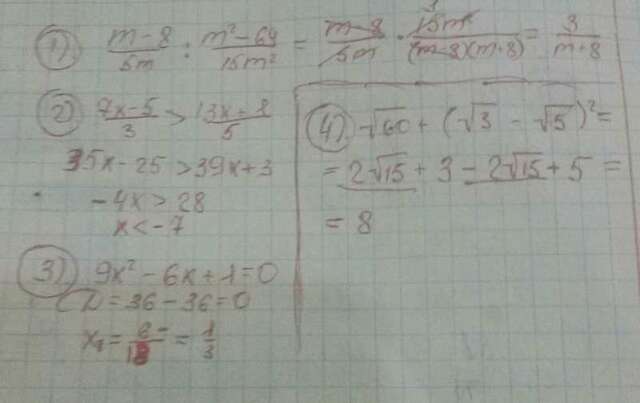 1) (m-8)/5m : (m²-64)/15m² = (m-8)/5m · 15m²/((m-8)(m+8)) = 3/(m+8)
2) (7x-5)/3 > (13x+1)/5
35x-25 > 39x+3
-4x > 28
x < -7
3) 9x²-6x+1=0
D=36-36=0
x₁ = 6/18 = 1/3
4) √60 + (√3 - √5)² =
= 2√15 + 3 - 2√15 + 5 =
= 8